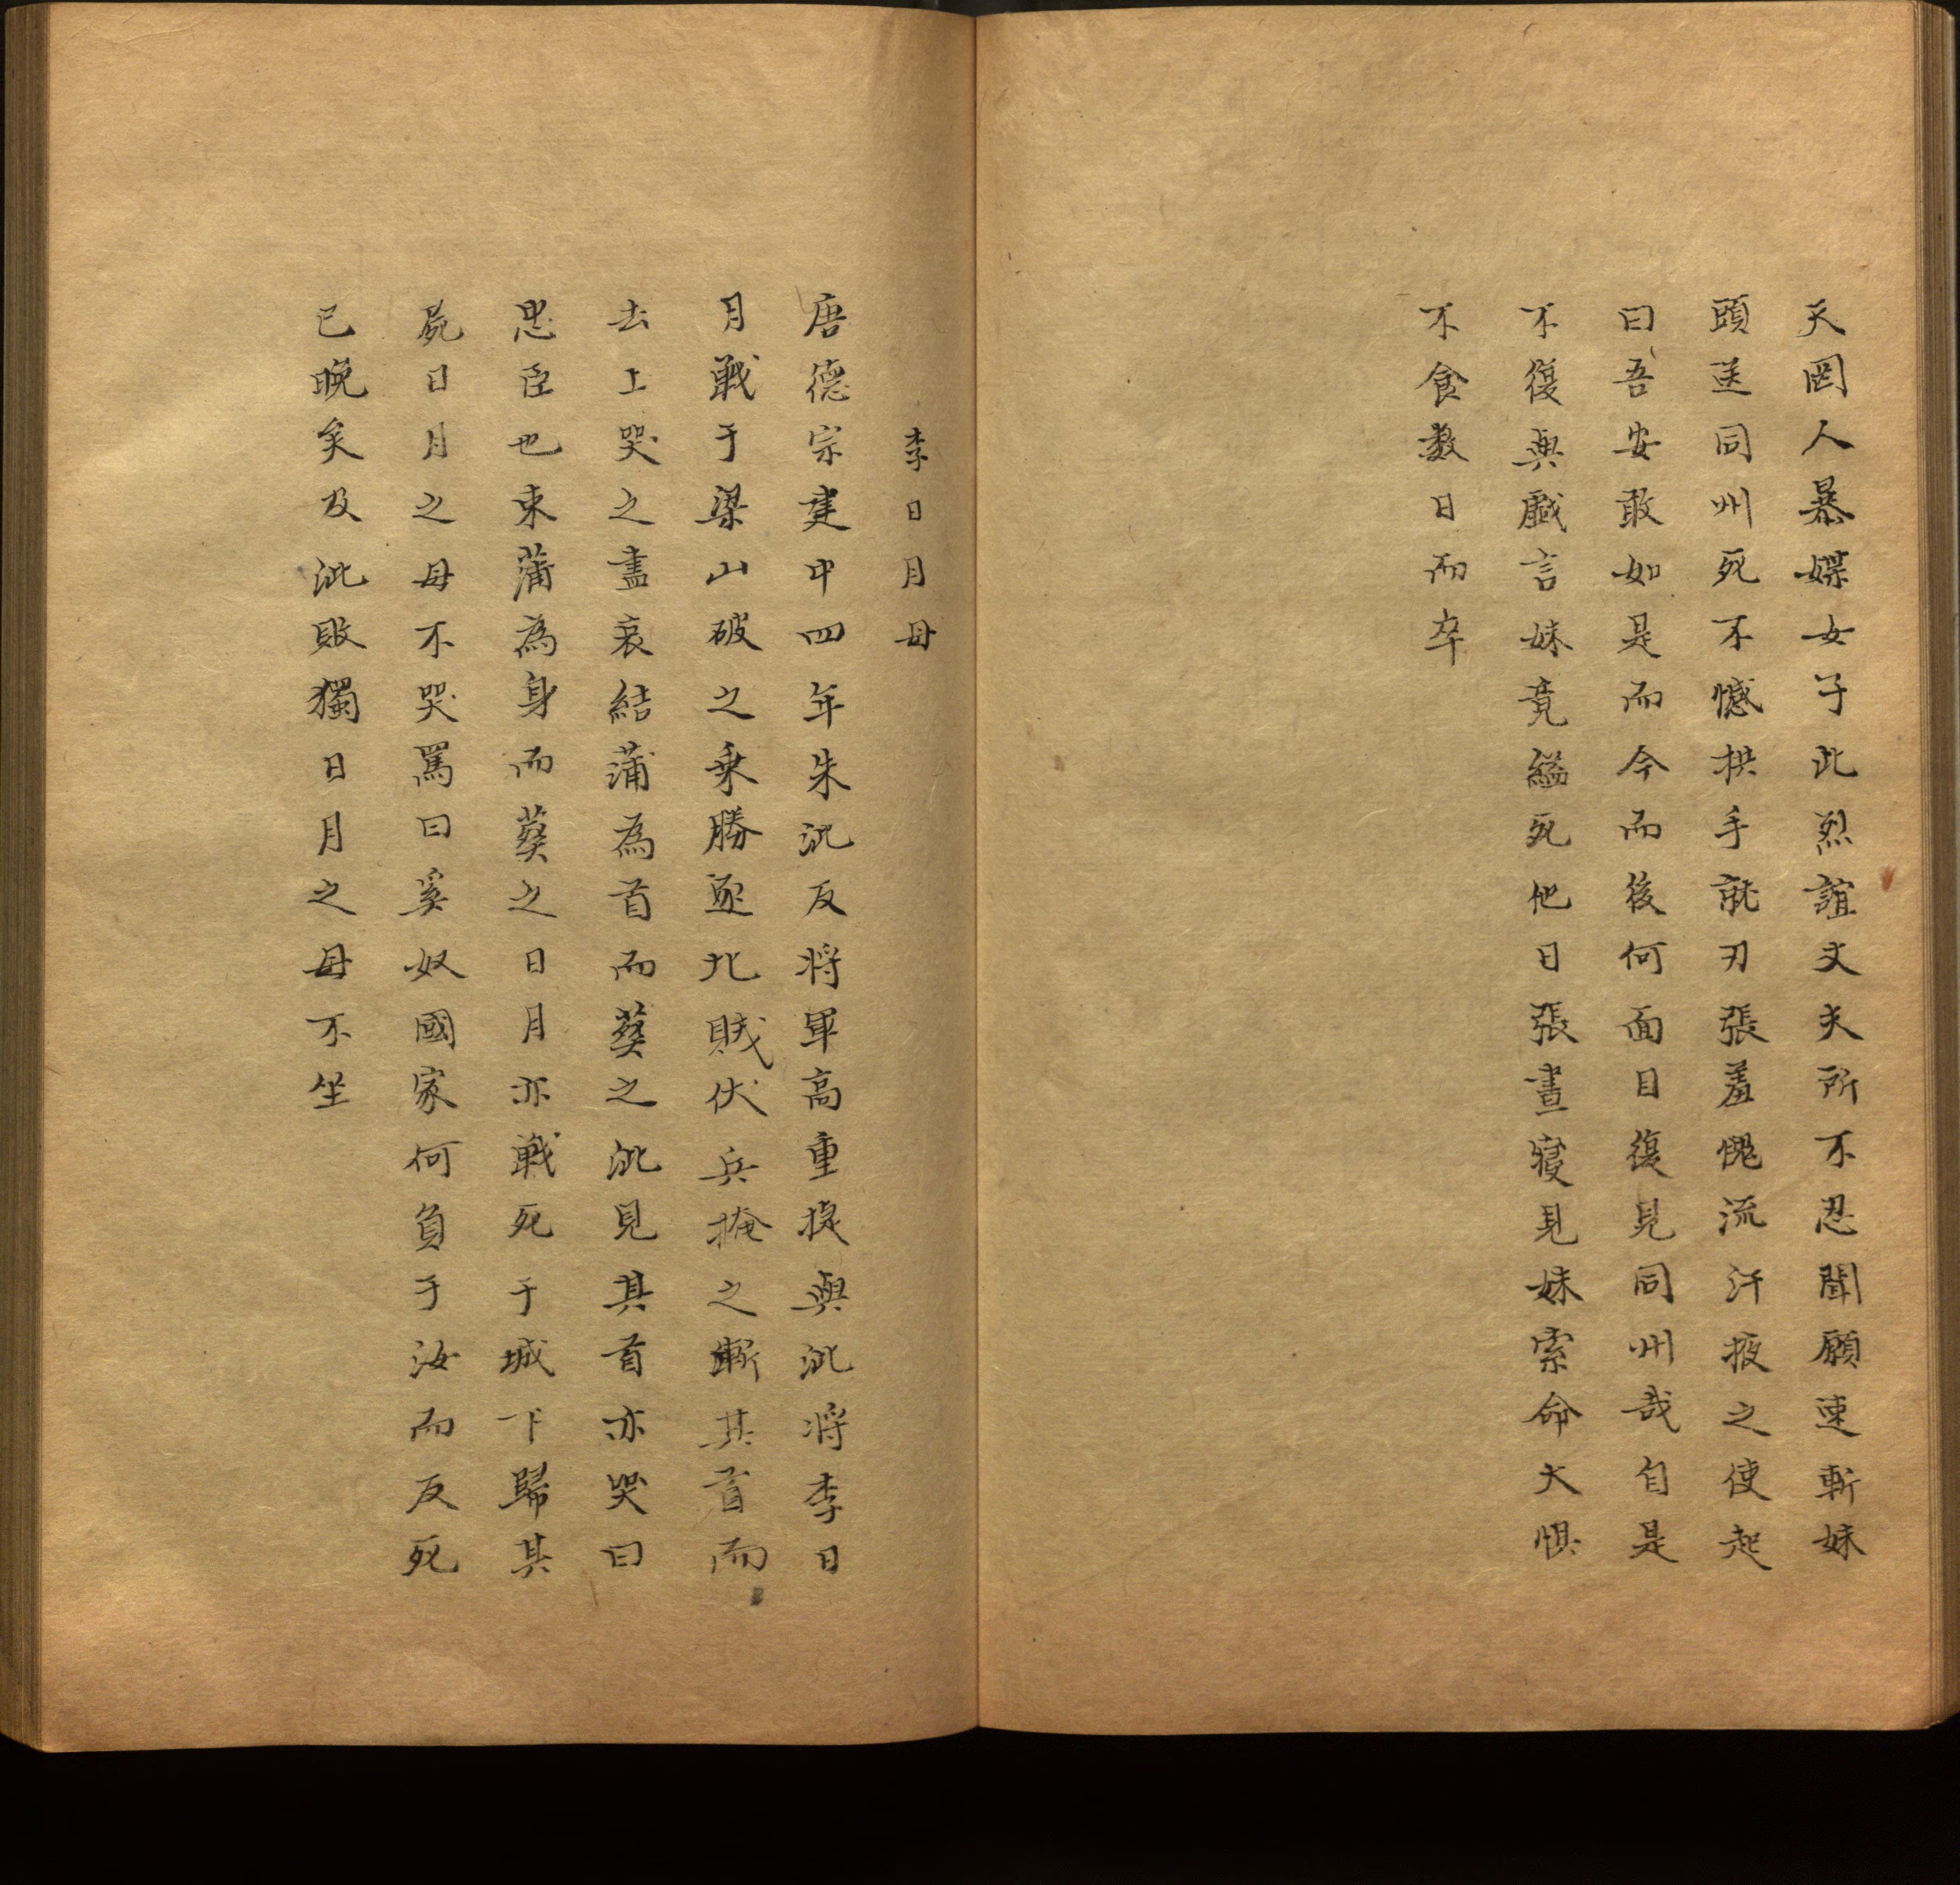 天罔人暴媟女子此烈誼丈夫所不忍聞願速斬妹
頭送同州死不憾拱手就刃張羞愧流汗掖之使起
曰吾安敢如是而今而後何面目復見同州哉自是
不復與戲言妹竟縊死他日張晝寢見妹索命大惧
不食数日而卒
李日月母
唐德宗建中四年朱泚反将軍高重捷與泚将李日
月戰于梁山破之乗勝逐北賊伏兵掩之斬其首而
去上哭之盡哀結蒲為首而葵之泚見其首亦哭曰
忠臣也束蒲為身而葵之日月亦戰死于城下歸其
屍日月之母不哭罵曰奚奴國家何負于汝而反死
已晚矣及泚敗獨日月之母不坐